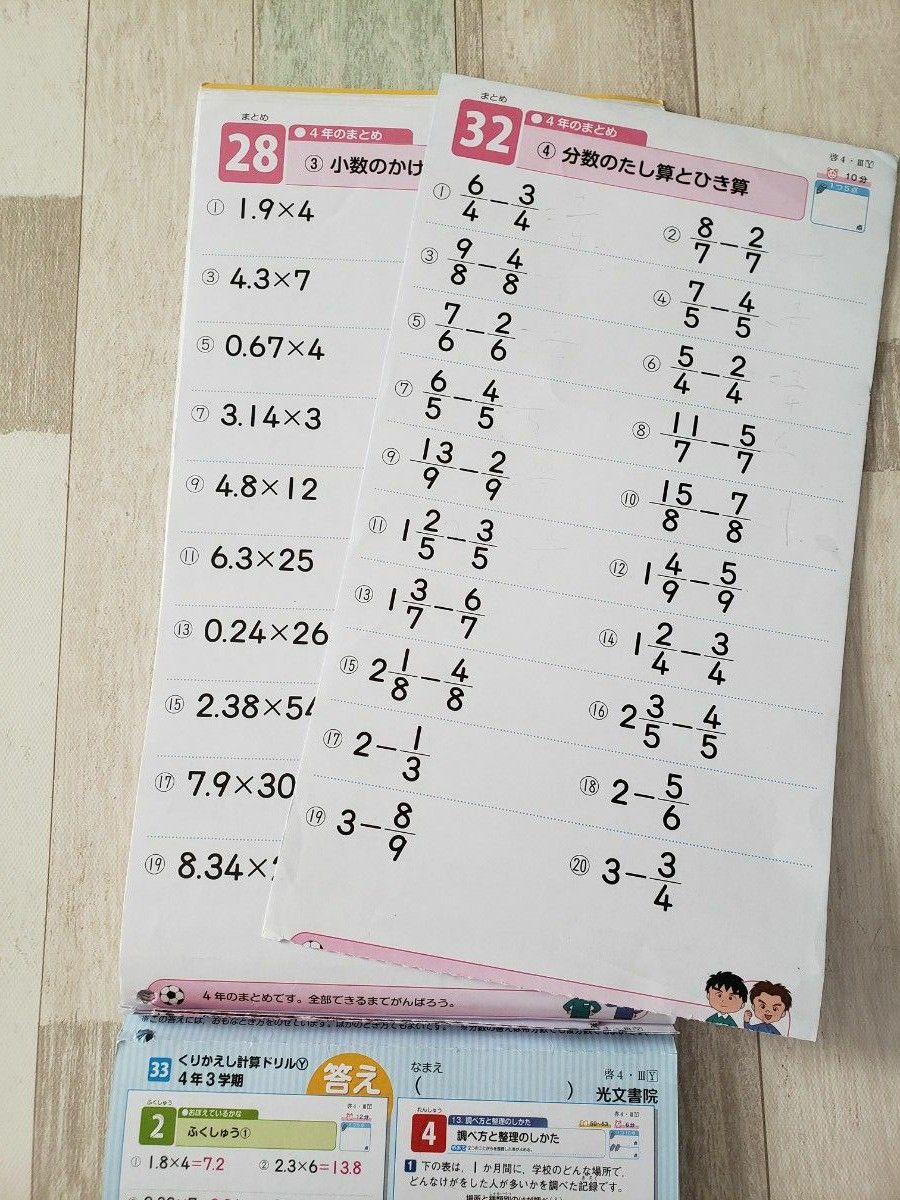 まとめ
28
●4年のまとめ
③ 小数のかけ
① 1.9×4
③ 4.3×7
⑤ 0.67×4
⑦ 3.14×3
⑨ 4.8×12
⑪ 6.3×25
⑬ 0.24×26
⑮ 2.38×54
⑰ 7.9×30
⑲ 8.34×
4年のまとめです。全部できるまでがんばろう。
まとめ
32
●4年のまとめ
④ 分数のたし算とひき算
啓4・ⅢY
10分
1つ5点
点
① 6/4−3/4
② 8/7−2/7
③ 9/8−4/8
④ 7/5−4/5
⑤ 7/6−2/6
⑥ 5/4−2/4
⑦ 6/5−4/5
⑧ 11/7−5/7
⑨ 13/9−2/9
⑩ 15/8−7/8
⑪ 1 2/5−3/5
⑫ 1 4/9−5/9
⑬ 1 3/7−6/7
⑭ 1 2/4−3/4
⑮ 2 1/8−4/8
⑯ 2 3/5−4/5
⑰ 2−1/3
⑱ 2−5/6
⑲ 3−8/9
⑳ 3−3/4
33
くりかえし計算ドリルⓎ
4年3学期
答え
なまえ
( )
啓4・ⅢY
光文書院
ふくしゅう
2
●おぼえているかな
ふくしゅう①
12分
① 1.8×4=7.2
② 2.3×6=13.8
たんしゅう
4
13. 調べ方と整理のしかた
調べ方と整理のしかた
1 下の表は、1か月間に、学校のどんな場所で、
どんなけがをした人が多いかを調べた記録です。